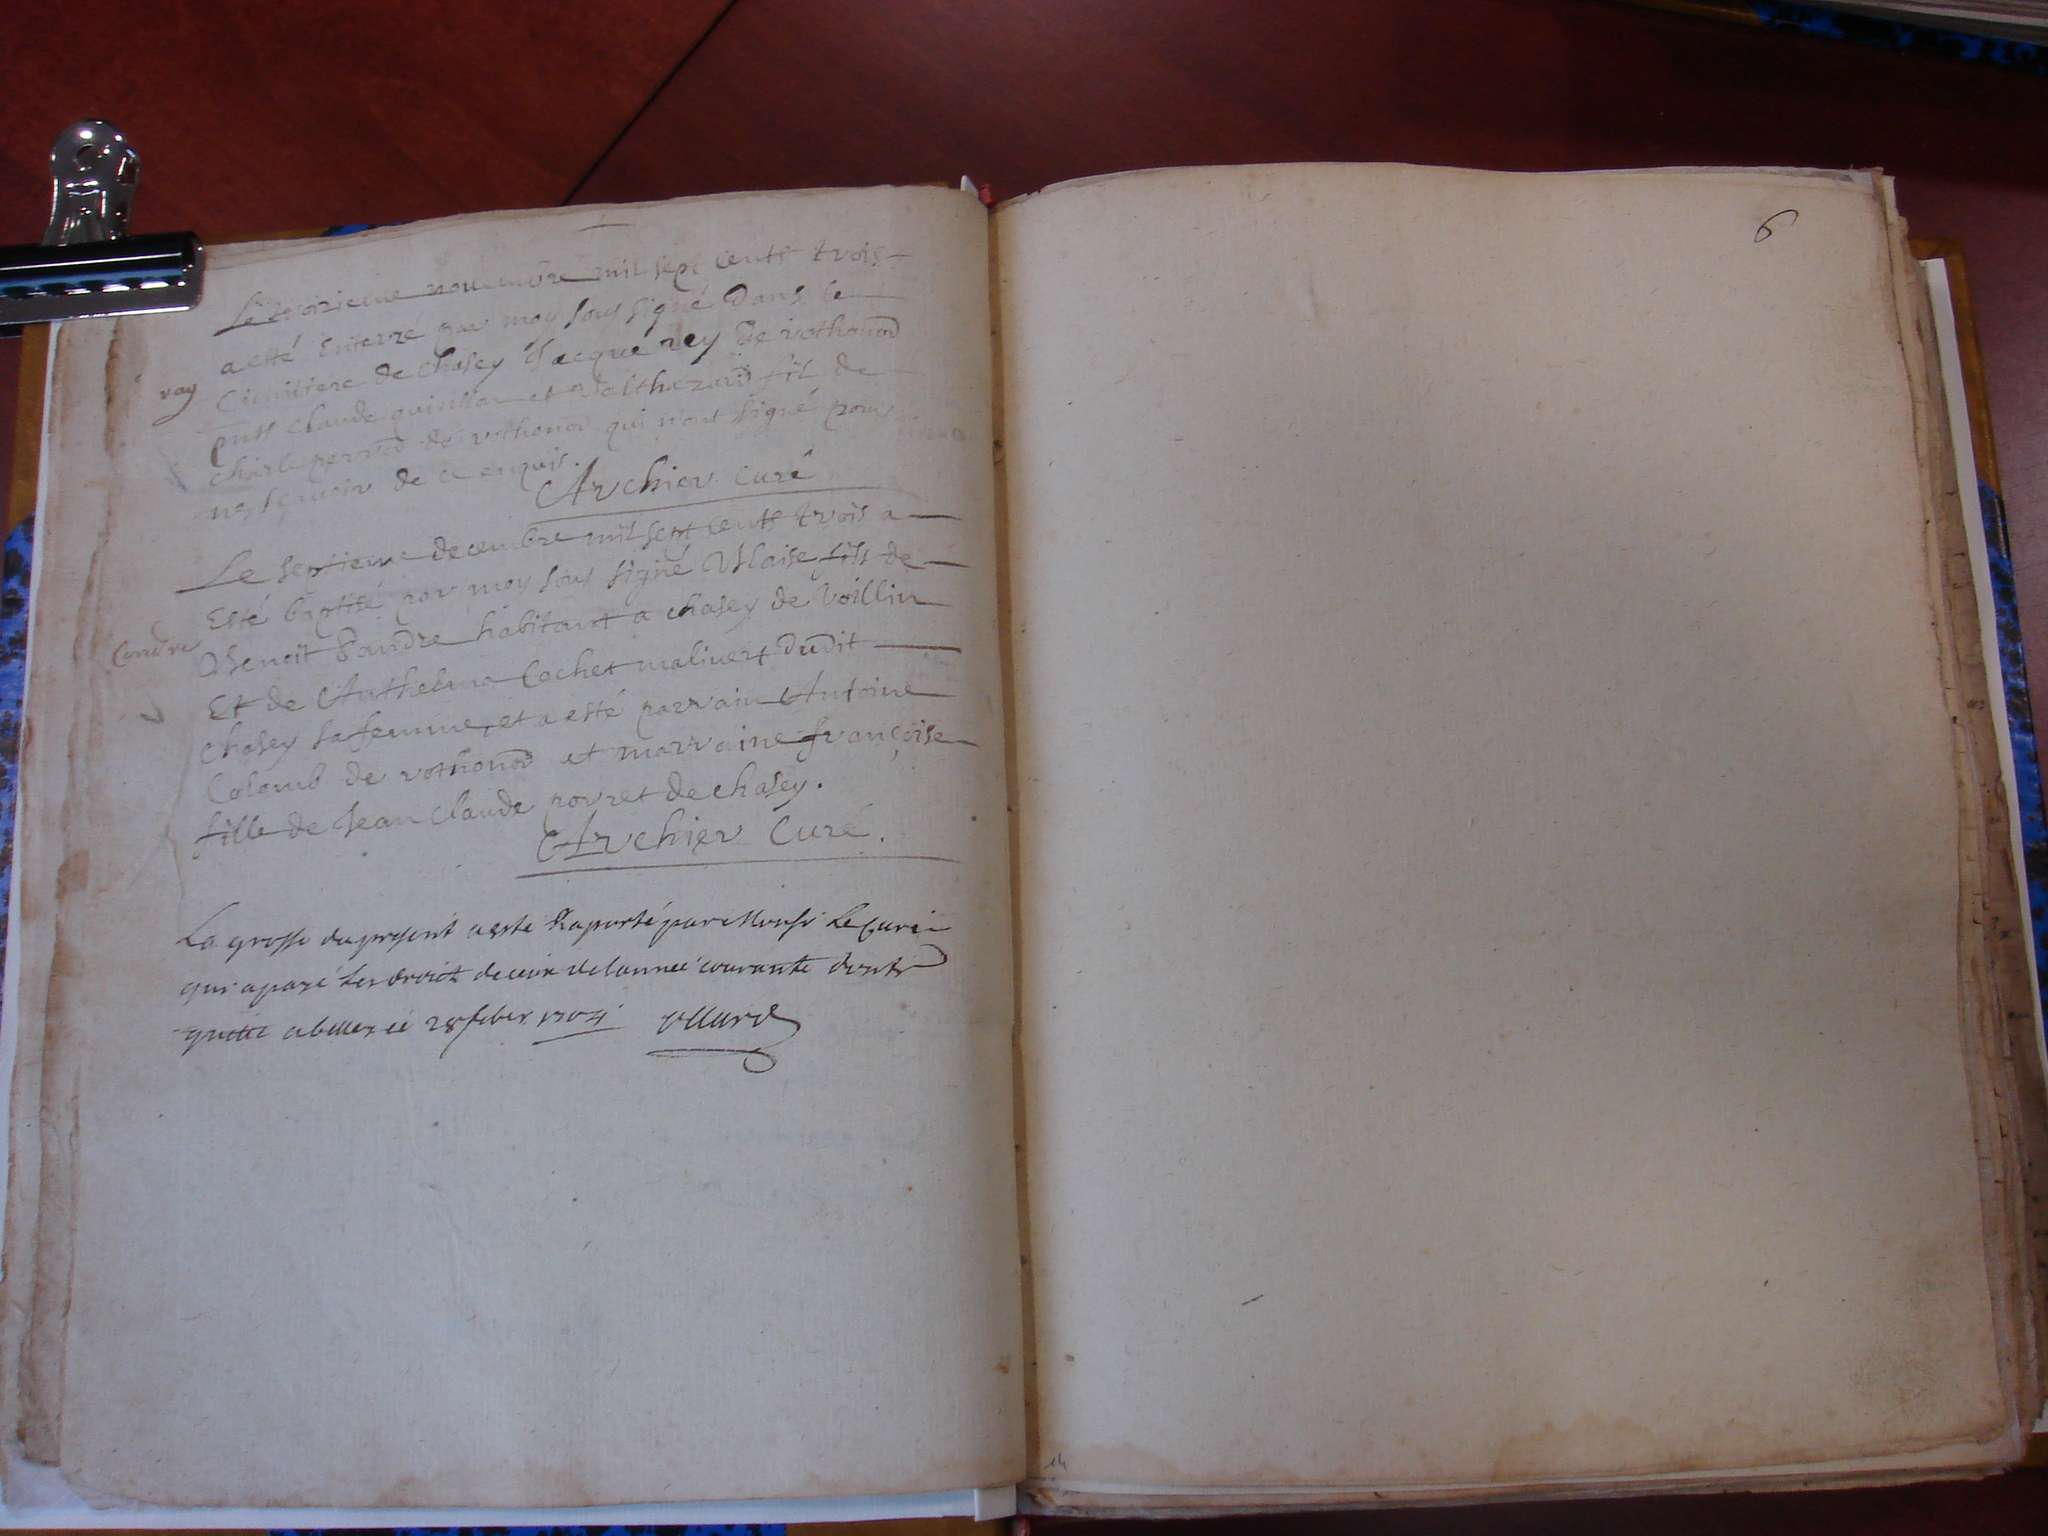 Le troisieme nouembre mil sept cents trois
a esté enterre par moy sous signé dans le
Cimitiere de chasey Jacque rey de vothonod
ray
pnts claude et Balthazard fil de
charle perrod de vothonod qui n'ont signé pour
ne scauoir de ce enquis.
Archier curé
Le septieme decembre mil sept cents trois a
Esté baptisé par moy sous signé Blaise fils de
Benoit habitant a chasey de Voillin
Et de Anthelma Cochet maliuert dudit
chasey sa femme, et a esté parrain Antoine
Colomb de vothonod et marraine françoise
fille de Jean Claude porret de chasey.
Archier Curé.
La grosse du present a esté Raporté par Monsr Le Curé
qui a payé les droicts de ceux de lannee courante dont
quitte a belley ce 28 feber 1704
6